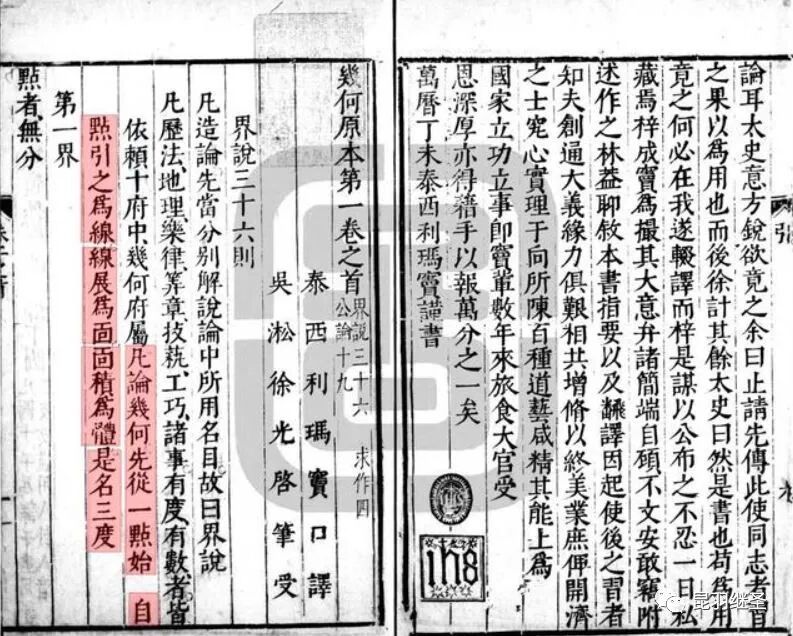 論耳太史意方銳欲竟之余曰止請先傳此使同志者習
之果以為用也而後徐計其餘太史曰然是書也苟為用
竟之何必在我遂輟譯而梓是謀以公布之不忍一日私
藏焉梓成竇為撮其大意弁諸簡端自顧不文安敢竊附
述作之林葢聊敘本書指要以及繙譯因起使後之習者
知夫創通大義緣力俱艱相共增脩以終美業庶俾開濟
之士究心實理于向所陳百種道藝咸精其能上為
國家立功立事即竇輩數年來旅食大官受
恩深厚亦得藉手以報萬分之一矣
萬曆丁未泰西利瑪竇謹書
IHS
幾何原本第一卷之首 界說三十六 求作四
公論十九
泰西利瑪竇口譯
吳淞徐光啓筆受
界說三十六則
凡造論先當分別解說論中所用名目故曰界說
凡歷法、地理、樂律、算章、技藝、工巧、諸事有度、有數者皆
依賴十府中、幾何府屬凡論幾何先從一點始 自
點引之為線線展為面面積為體是名三度
第一界
點者、無分
引
昆羽继圣